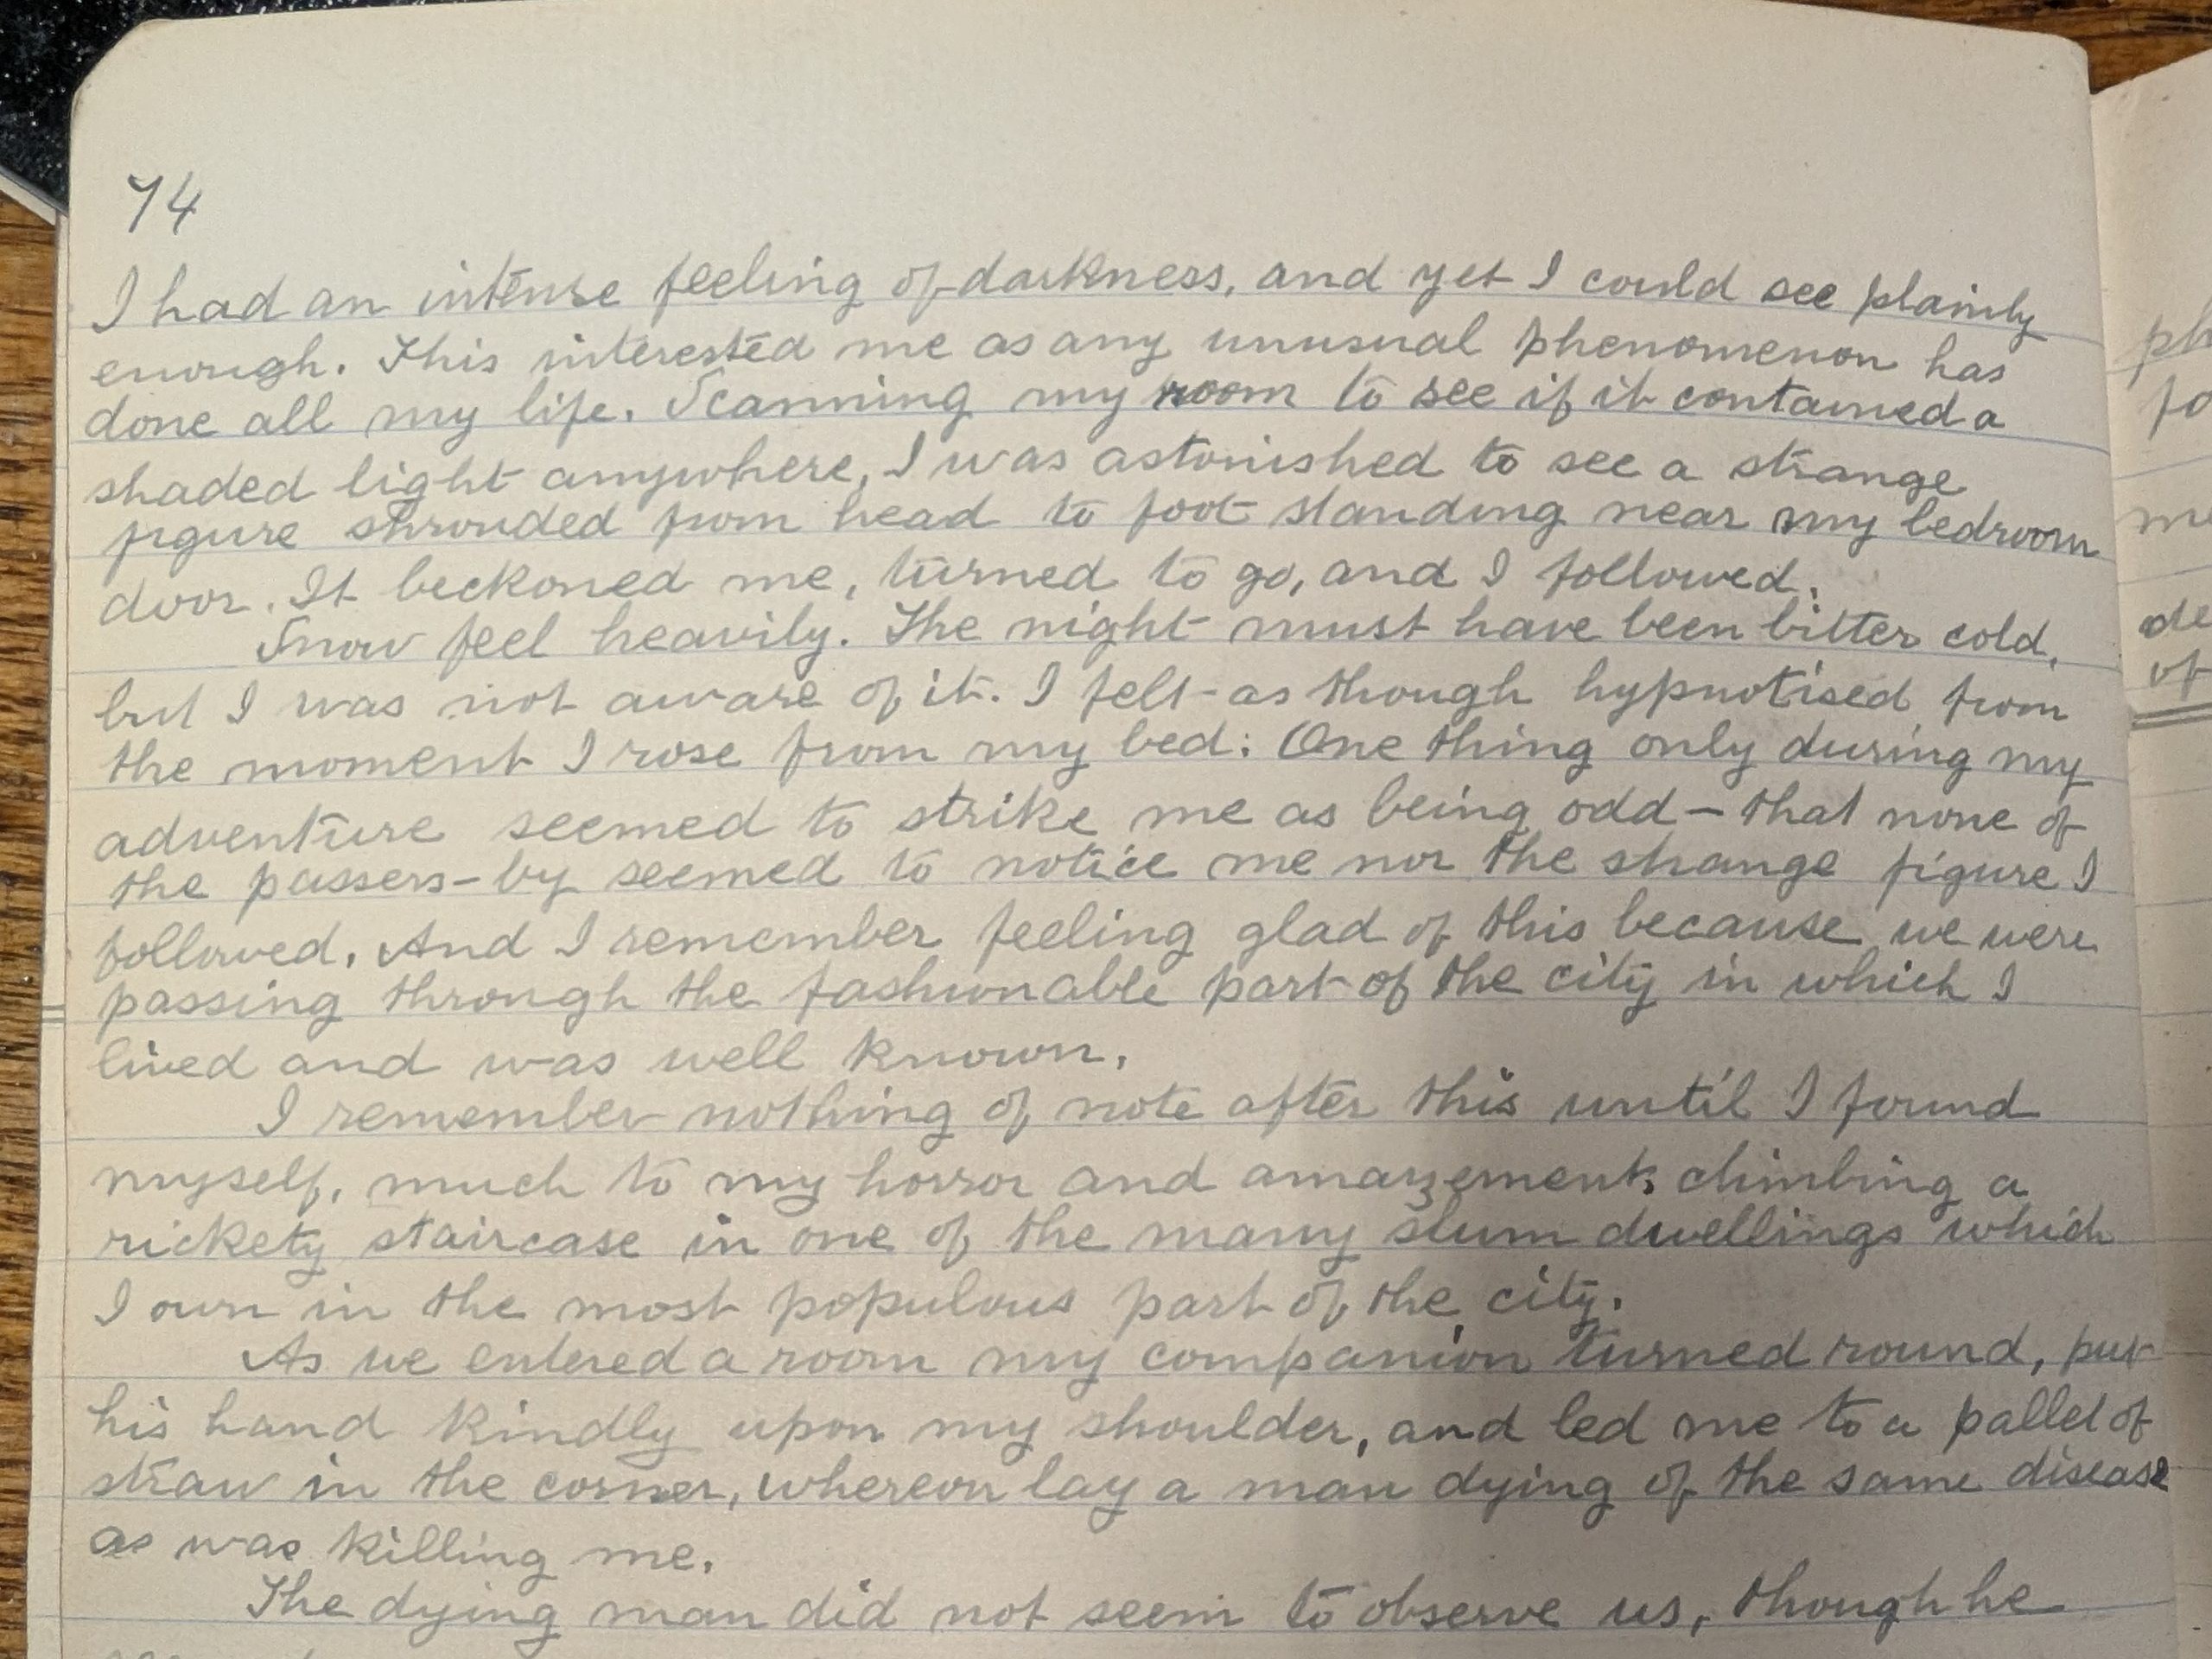 74
I had an intense feeling of darkness, and yet I could see plainly
enough. This interested me as any unusual phenomenon has
done all my life. Scanning my room to see if it contained a
shaded light anywhere, I was astonished to see a strange
figure shrouded from head to foot standing near my bedroom
door. It beckoned me, turned to go, and I followed.
Snow feel heavily. The night must have been bitter cold,
but I was not aware of it. I felt as though hypnotised from
the moment I rose from my bed: One thing only during my
adventure seemed to strike me as being odd – that none of
the passers-by seemed to notice me nor the strange figure I
followed. And I remember feeling glad of this because we were
passing through the fashionable part of the city in which I
lived and was well known.
I remember nothing of note after this until I found
myself, much to my horror and amazement, climbing a
rickety staircase in one of the many slum dwellings which
I own in the most populous part of the city.
As we entered a room my companion turned round, put
his hand kindly upon my shoulder, and led me to a pallet of
straw in the corner, whereon lay a man dying of the same disease
as was killing me.
The dying man did not seem to observe us, though he
ph
fo
me
de
of